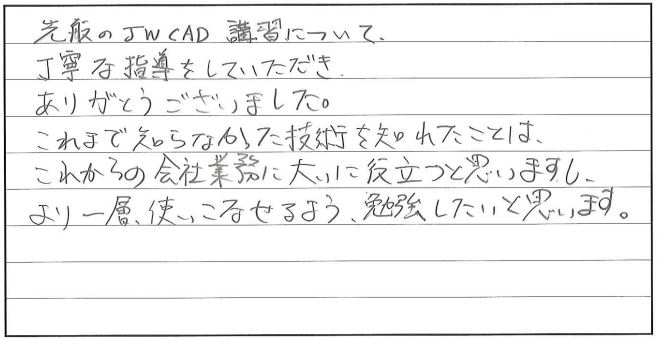 先般のJWCAD講習について、
丁寧な指導をしていただき
ありがとうございました。
これまで知らなかった技術を知れたことは、
これからの会社業務に大いに役立つと思いますし、
より一層、使いこなせるよう、勉強したいと思います。